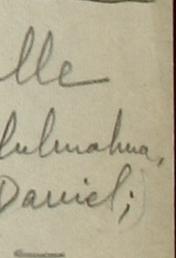 lle
lulmahua,
Daniel;